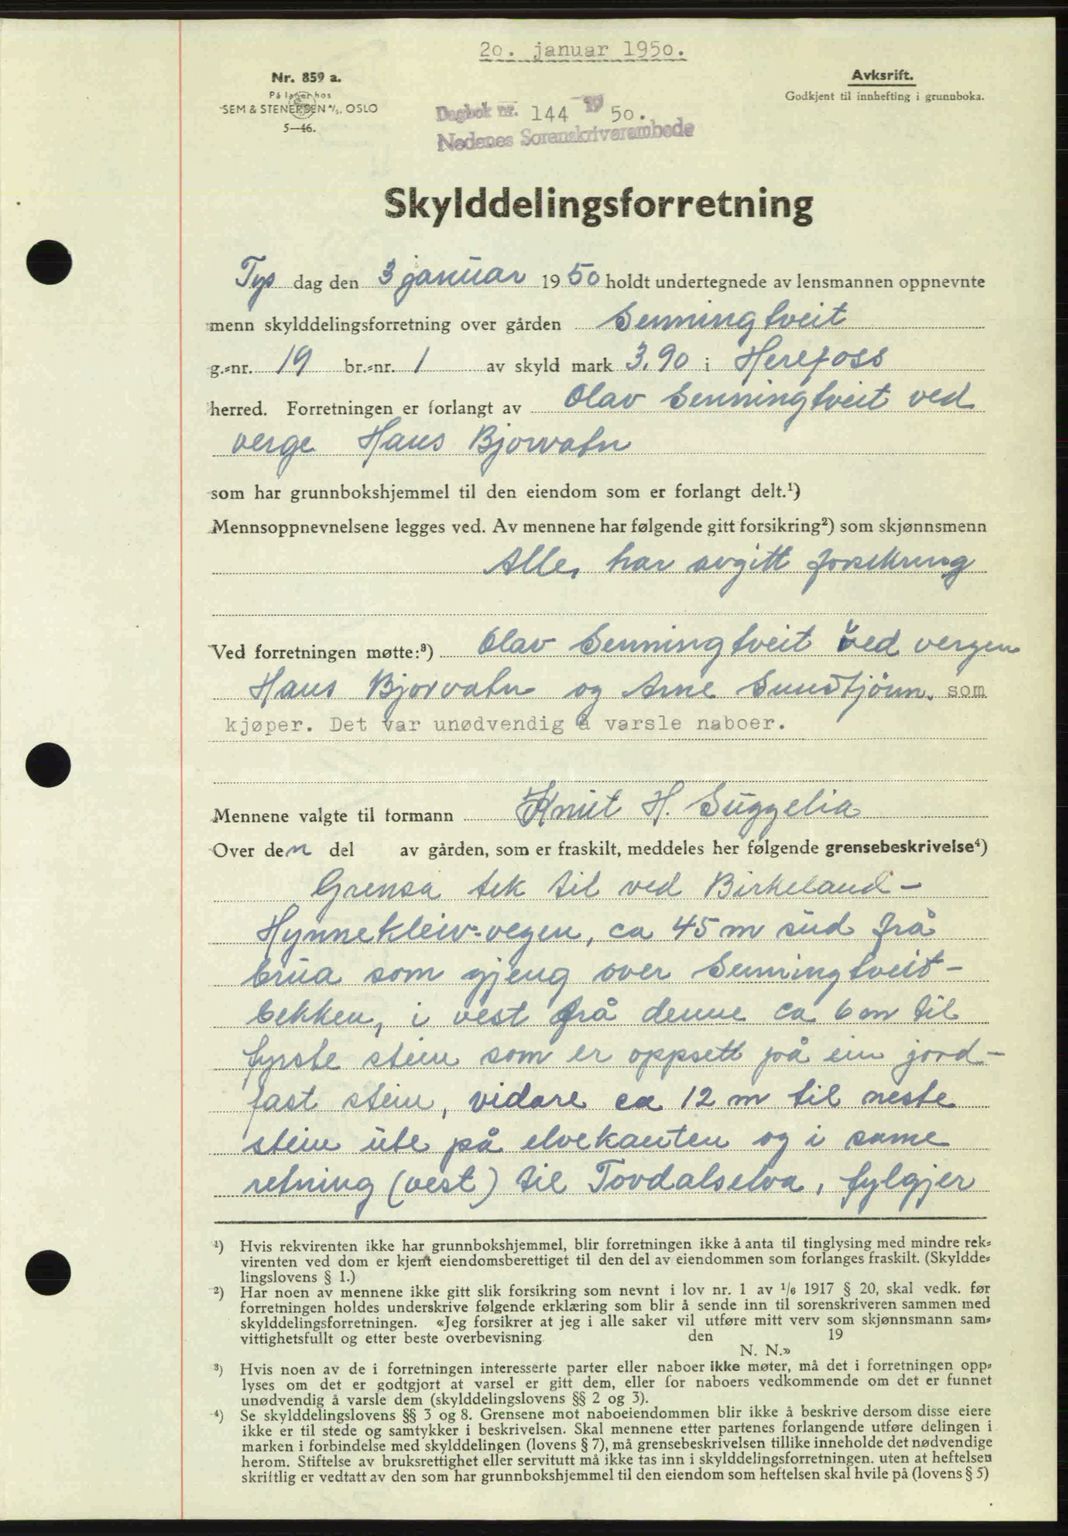 20. januar 1950.
Nr. 859 a.
På lager hos
SEM & STENERSEN A/S, OSLO
5—46.
Avksrift.
Godkjent til innhefting i grunnboka.
Dagbok nr. 144 19 50.
Nedenes Sorenskriverembede
Skylddelingsforretning
Tys dag den 3 januar 1950 holdt undertegnede av lensmannen oppnevnte
menn skylddelingsforretning over gården Senningtveit
g.-nr. 19 br.-nr. 1 av skyld mark 3.90 i Herefoss
herred. Forretningen er forlangt av Olav Senningtveit ved
verge Hans Bjorvatn
som har grunnbokshjemmel til den eiendom som er forlangt delt.¹)
Mennsoppnevnelsene legges ved. Av mennene har følgende gitt forsikring²) som skjønnsmenn
Alle, har avgitt forsikring
Ved forretningen møtte:³) Olav Senningtveit ved vergen
Hans Bjorvatn og Arne Sundtjønn. som
kjøper. Det var unødvendig å varsle naboer.
Mennene valgte til formann Knut H. Suggelia
Over den del av gården, som er fraskilt, meddeles her følgende grensebeskrivelse⁴)
Grensa tek til ved Birkeland-
Hynnekleiv-vegen, ca 45 m sud frå
brua som gjeng over Senningtveit-
bekken, i vest frå denne ca 6 m til
fyrste stein som er oppsett på ein jord-
fast stein, vidare ca 12 m til neste
stein ute på elvekanten og i same
retning (vest) til Tovdalselva, fylgjer
¹) Hvis rekvirenten ikke har grunnbokshjemmel, blir forretningen ikke å anta til tinglysing med mindre rek-
virenten ved dom er kjent eiendomsberettiget til den del av eiendommen som forlanges fraskilt. (Skyldde-
lingslovens § 1.)
²) Har noen av mennene ikke gitt slik forsikring som nevnt i lov nr. 1 av 1/6 1917 § 20, skal vedk. før
forretningen holdes underskrive følgende erklæring som blir å sende inn til sorenskriveren sammen med
skylddelingsforretningen. «Jeg forsikrer at jeg i alle saker vil utføre mitt verv som skjønnsmann sam-
vittighetsfullt og etter beste overbevisning den 19
N. N.»
³) Hvis noen av de i forretningen interesserte parter eller naboer ikke møter, må det i forretningen opp-
lyses om det er godtgjort at varsel er gitt dem, eller for naboers vedkommende om det er funnet
unødvendig å varsle dem (skylddelingslovens §§ 2 og 3).
⁴) Se skylddelingslovens §§ 3 og 8. Grensene mot naboeiendommen blir ikke å beskrive dersom disse eiere
ikke er til stede og samtykker i beskrivelsen. Skal mennene etter partenes forlangende utføre delingen i
marken i forbindelse med skylddelingen (lovens § 7), må grensebeskrivelsen tillike inneholde det nødvendige
herom. Stiftelse av bruksrettighet eller servitutt må ikke tas inn i skylddelingsforretningen. uten at heftelsen
skriftlig er vedtatt av den som har grunnbokshjemmel til den eiendom som heftelsen skal hvile på (lovens § 5)